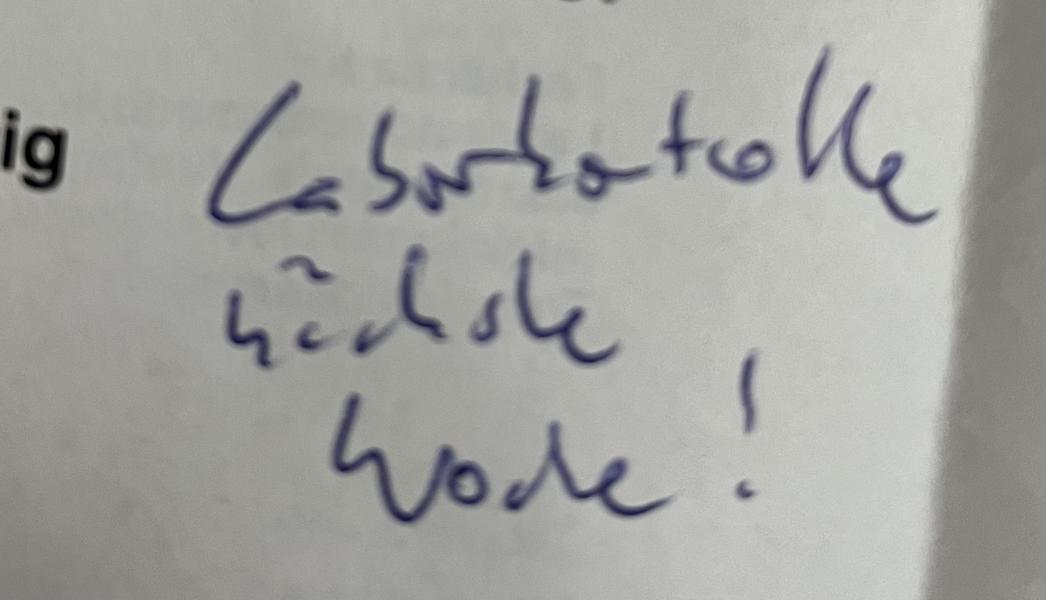 ig Laborkontrolle
nächste
Woche!